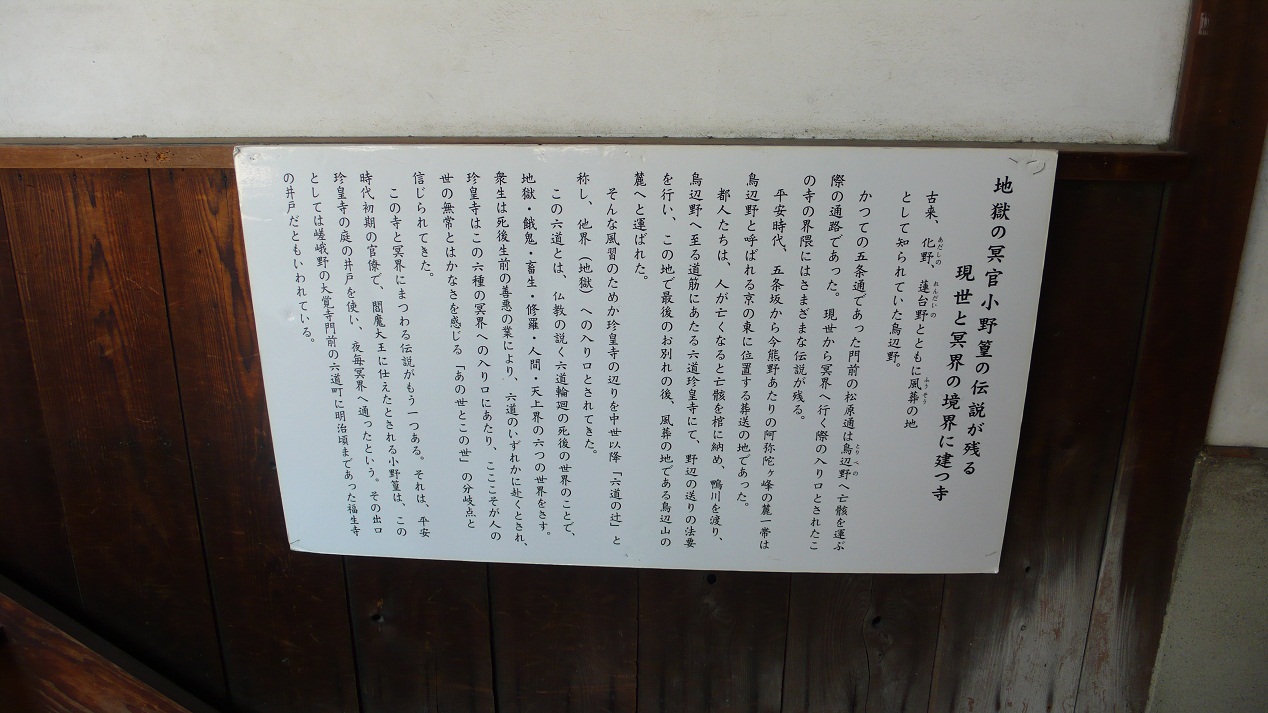 地獄の冥官小野篁の伝説が残る
現世と冥界の境界に建つ寺
古来、化野、蓮台野とともに風葬の地
として知られていた鳥辺野。
かつての五条通であった門前の松原通は鳥辺野へ亡骸を運ぶ
際の通路であった。現世から冥界へ行く際の入り口とされたこ
の寺の界隈にはさまざまな伝説が残る。
平安時代、五条坂から今熊野あたりの阿弥陀ヶ峰の麓一帯は
鳥辺野と呼ばれる京の東に位置する葬送の地であった。
都人たちは、人が亡くなると亡骸を棺に納め、鴨川を渡り、
鳥辺野へ至る道筋にあたる六道珍皇寺にて、野辺の送りの法要
を行い、この地で最後のお別れの後、風葬の地である鳥辺山の
麓へと運ばれた。
そんな風習のためか珍皇寺の辺りを中世以降「六道の辻」と
称し、他界（地獄）への入り口とされてきた。
この六道とは、仏教の説く六道輪廻の死後の世界のことで、
地獄・餓鬼・畜生・修羅・人間・天上界の六つの世界をさす。
衆生は死後生前の善悪の業により、六道のいずれかに赴くとされ、
珍皇寺はこの六種の冥界への入り口にあたり、ここそが人の
世の無常とはかなさを感じる「あの世とこの世」の分岐点と
信じられてきた。
この寺と冥界にまつわる伝説がもう一つある。それは、平安
時代初期の官僚で、閻魔大王に仕えたとされる小野篁は、この
珍皇寺の庭の井戸を使い、夜毎冥界へ通ったという。その出口
としては嵯峨野の大覚寺門前の六道町に明治頃まであった福生寺
の井戸だともいわれている。